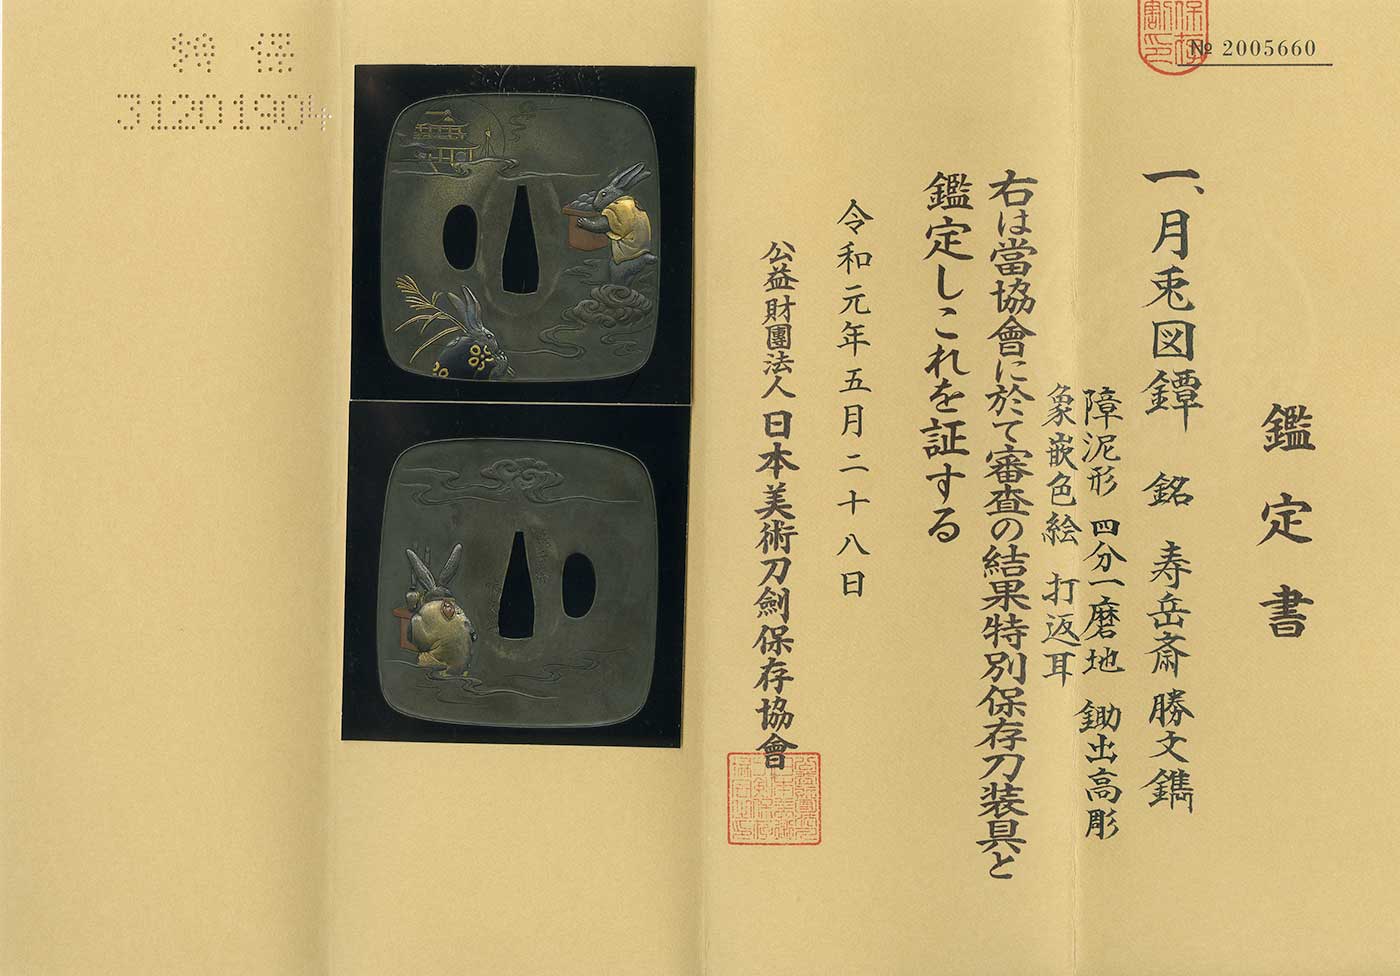 № 2005660
鑑定書
一、月兎図鐔 銘 寿岳斎勝文鐫
障泥形 四分一磨地 鋤出高彫
象嵌色絵 打返耳
右は當協會に於て審査の結果特別保存刀装具と
鑑定しこれを証する
令和元年五月二十八日
公益財團法人 日本美術刀劍保存協會
特 保
31201904